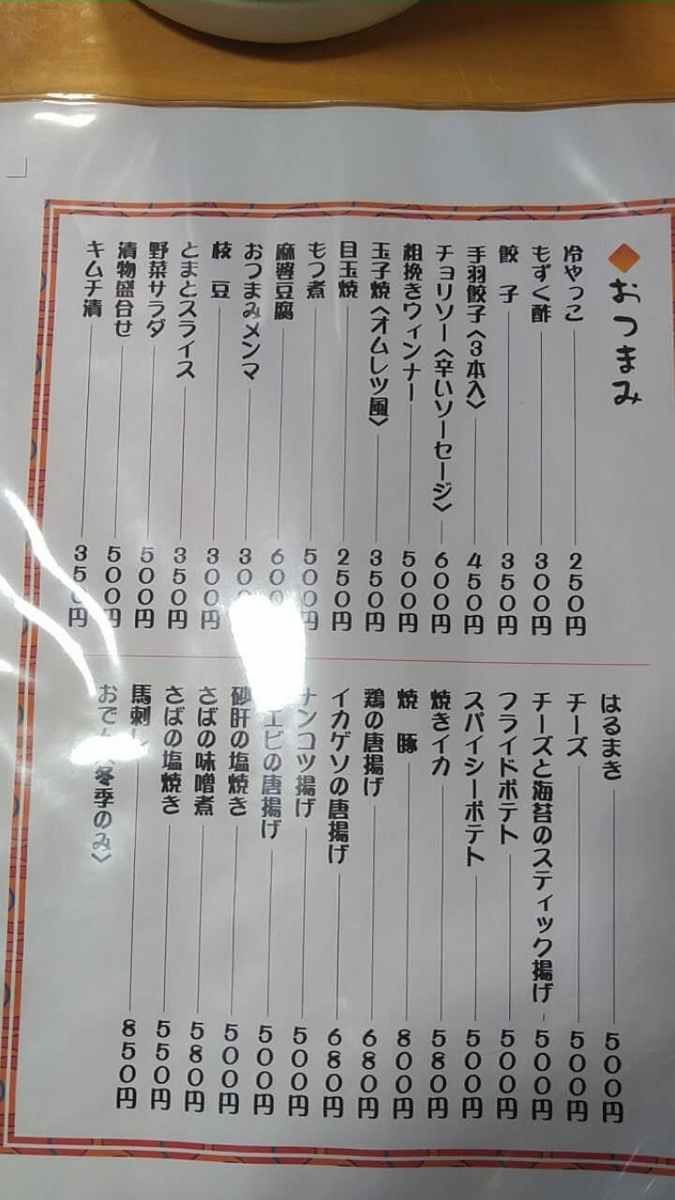 おつまみ
冷やっこ 250円
もずく酢 300円
餃子 350円
手羽餃子〈3本入〉 450円
チョリソー〈辛いソーセージ〉 600円
粗挽きウィンナー 500円
玉子焼〈オムレツ風〉 350円
目玉焼 250円
もつ煮 500円
麻婆豆腐 600
おつまみメンマ 300
枝豆 300円
とまとスライス 350円
野菜サラダ 500円
漬物盛合せ 500円
キムチ漬 350円
はるまき 500円
チーズ 500円
チーズと海苔のスティック揚げ 500円
フライドポテト 500円
スパイシーポテト 500円
焼きイカ 580円
焼豚 800円
鶏の唐揚げ 680円
イカゲソの唐揚げ 680円
ナンコツ揚げ 500円
エビの唐揚げ 500円
砂肝の塩焼き 500円
さばの味噌煮 580円
さばの塩焼き 550円
馬刺し 850円
おでん〈冬季のみ〉